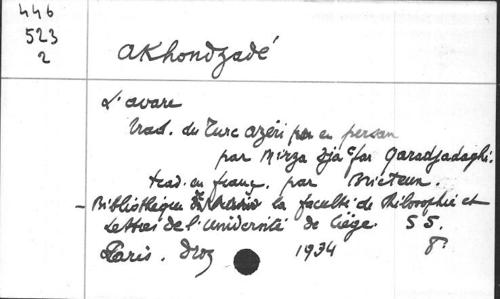 446
523
2
Akhondzadé
L'avare
trad. du Turc azéri en persan
par Mirza Dja'far Qaradjadaghi.
trad. en franç. par Bricteux.
- Bibliothèque de la faculté de Philosophie et
Lettres de l'université de Liège. 55.
Paris. Droz 1934 8°.